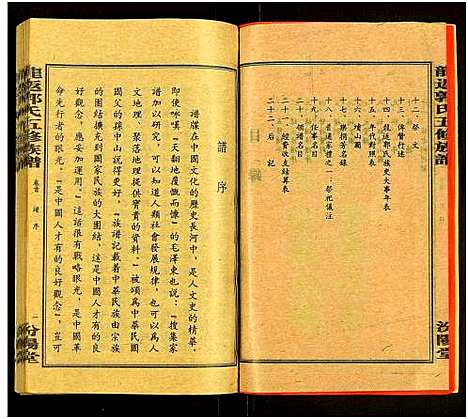 龍返郭氏五修族譜
十二、祭文
十三、俾瞥行述
十四、龍返郭氏族史大事年表
十五、年代對照表
十六、墳山圖
十七、樂捐芳名錄
十八、任事名錄
十九、禮儀家禮之一：祭祀儀注
二十、
二十一、經費收支結算表
二十二、后記
目錄
汾陽堂
譜序
譜牒在中國文化的歷史長河中，是人文史的精華。
即使咏嘆「天翻地覆慨而慷」的毛澤東也說：「搜集家
譜加以研究，可以知道人類社會發展規律，也可爲人
文地理、聚落地理提供寶貴的資料。」被頌爲中華民
國父的孫中山說得更好，「族譜記載着中華民族由宗族
的團結，擴大到國家民族的大團結，這是中國人才有的良
好觀念，應加運用。」這話很有戰略眼光，是中國革
命先行者的眼光。「是中國人才有的良好觀念」，並可
龍返郭氏五修族譜
卷首
譜序
一
汾陽堂